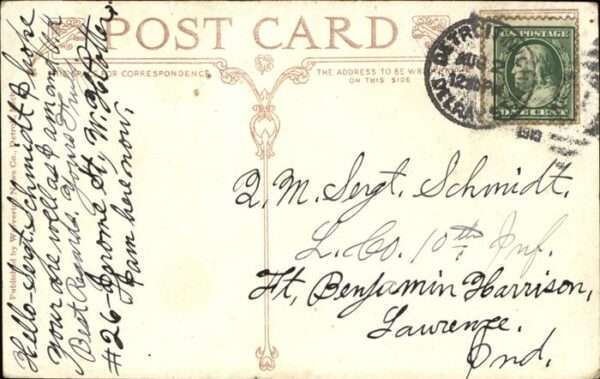 POST CARD
FOR CORRESPONDENCE
THE ADDRESS TO BE
ON THIS SIDE
DETROIT, MICH.
AUG 2
12
DELRAY
1913
U.S. POSTAGE
ONE CENT
Hello - Sergt. Schmidt I hope
your are well as I am
Best Regards. Yours Truly
#26 - Jerome St, W.
I am here now.
Q. M. Sergt. Schmidt.
L. Co. 10th Inf.
Ft, Benjamin Harrison,
Lawrence.
Ind.
Published by News Co., Detroit